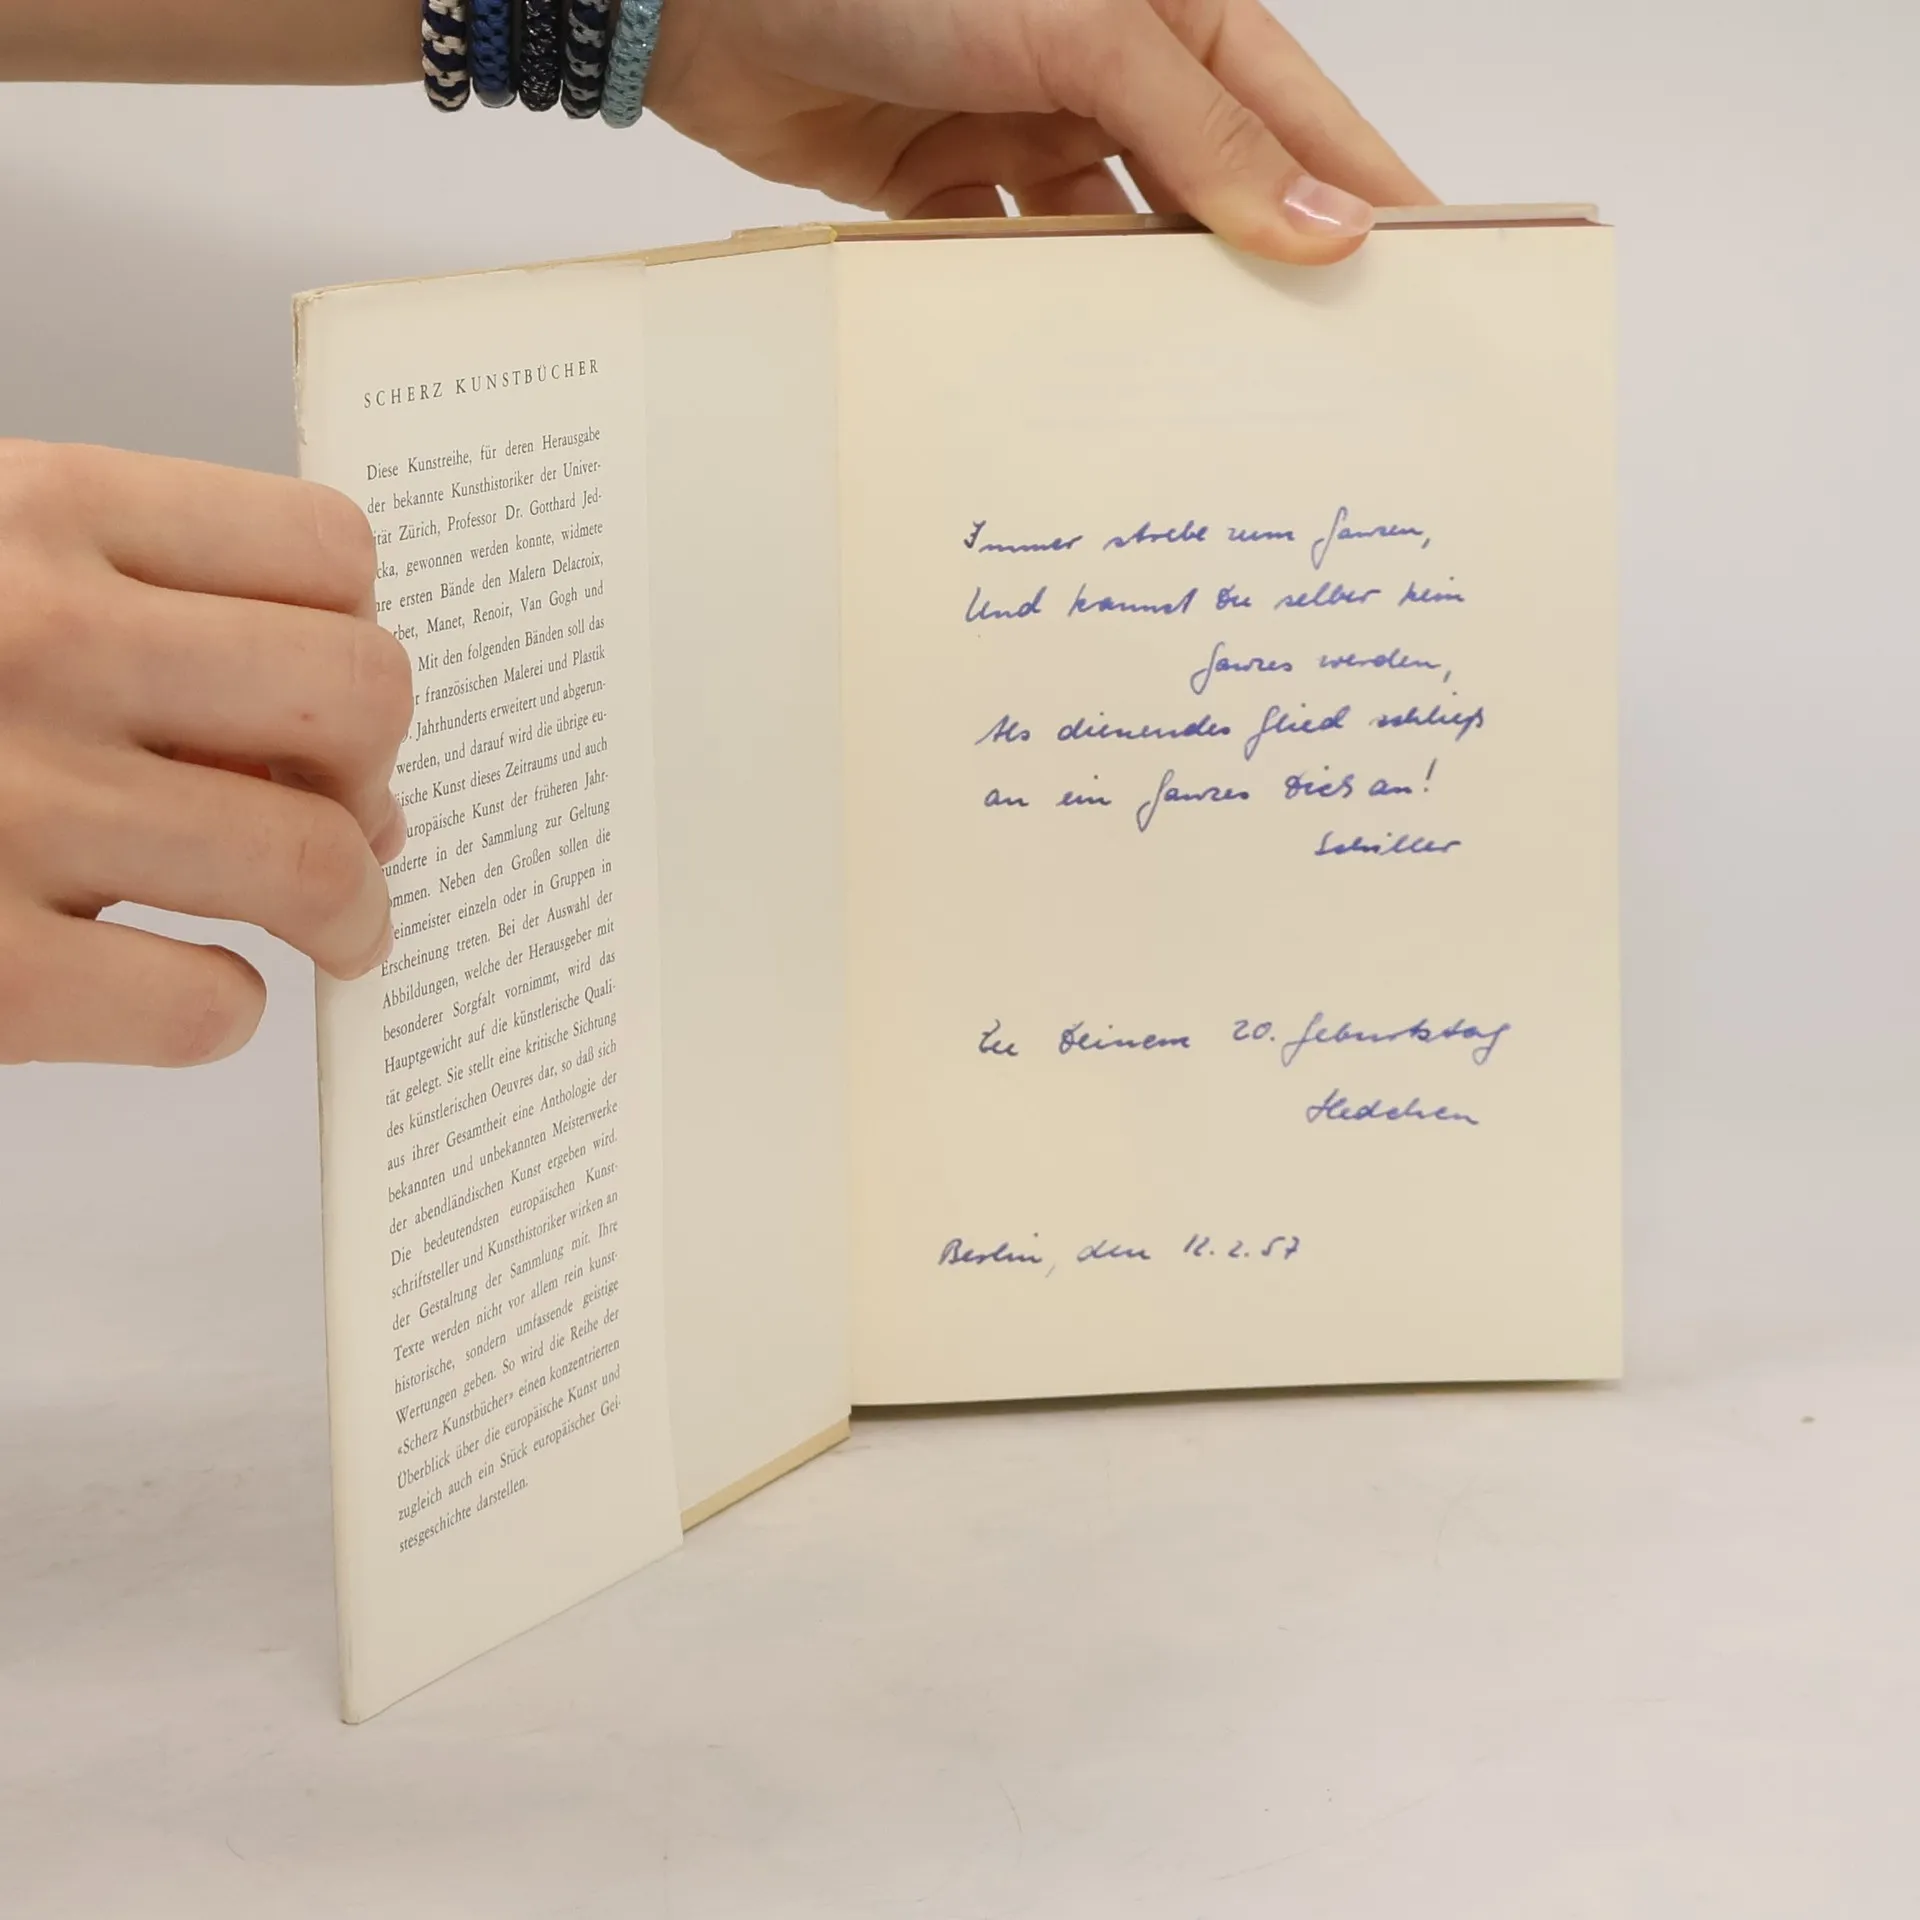 SCHERZ KUNSTBÜCHER
Diese Kunstreihe, für deren Herausgabe
der bekannte Kunsthistoriker der Univer-
ität Zürich, Professor Dr. Gotthard Jed-
cka, gewonnen werden konnte, widmete
hre ersten Bände den Malern Delacroix,
rbet, Manet, Renoir, Van Gogh und
Mit den folgenden Bänden soll das
r französischen Malerei und Plastik
. Jahrhunderts erweitert und abgerun-
werden, und darauf wird die übrige eu-
äische Kunst dieses Zeitraums und auch
europäische Kunst der früheren Jahr-
hunderte in der Sammlung zur Geltung
ommen. Neben den Großen sollen die
einmeister einzeln oder in Gruppen in
Erscheinung treten. Bei der Auswahl der
Abbildungen, welche der Herausgeber mit
besonderer Sorgfalt vornimmt, wird das
Hauptgewicht auf die künstlerische Quali-
tät gelegt. Sie stellt eine kritische Sichtung
des künstlerischen Oeuvres dar, so daß sich
aus ihrer Gesamtheit eine Anthologie der
bekannten und unbekannten Meisterwerke
der abendländischen Kunst ergeben wird.
Die bedeutendsten europäischen Kunst-
schriftsteller und Kunsthistoriker wirken an
der Gestaltung der Sammlung mit. Ihre
Texte werden nicht vor allem rein kunst-
historische, sondern umfassende geistige
Wertungen geben. So wird die Reihe der
«Scherz Kunstbücher» einen konzentrierten
Überblick über die europäische Kunst und
zugleich auch ein Stück europäischer Gei-
stesgeschichte darstellen.
Immer strebe zum Ganzen,
Und kannst Du selber kein
Ganzes werden,
Als dienendes Glied schließ
an ein Ganzes Dich an!
Schiller
Zu Deinem 20. Geburtstag
Hedchen
Berlin, den 12.2.57